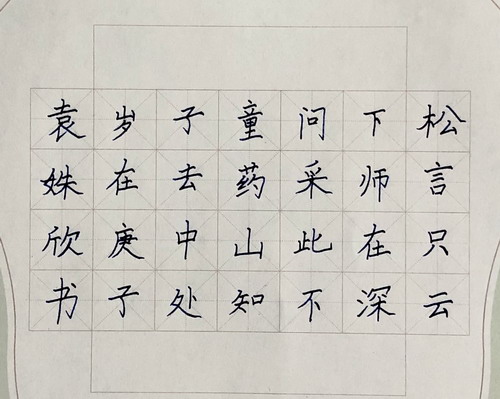 松下问童子
言师采药去
只在此山中
云深不知处
岁在庚子
袁姝欣书